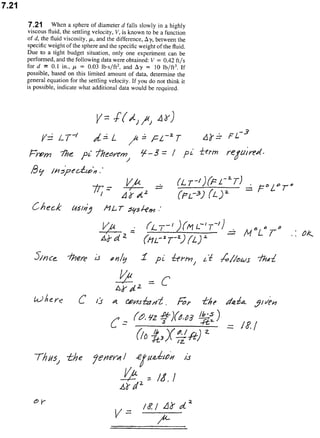 7.21
7.21 When a sphere of diameter d falls slowly in a highly
viscous fluid, the settling velocity, V, is known to be a function
of d, the fluid viscosity, μ, and the difference, Δγ, between the
specific weight of the sphere and the specific weight of the fluid.
Due to a tight budget situation, only one experiment can be
performed, and the following data were obtained: V = 0.42 ft/s
for d = 0.1 in., μ = 0.03 lb·s/ft², and Δγ = 10 lb/ft³. If
possible, based on this limited amount of data, determine the
general equation for the settling velocity. If you do not think it
is possible, indicate what additional data would be required.
V = f(d, μ, Δγ)
V ≐ LT⁻¹ d ≐ L μ ≐ FL⁻²T Δγ ≐ FL⁻³
From the pi theorem, 4-3 = 1 pi term required.
By inspection:
π₁ = Vμ / Δγ d² ≐ (LT⁻¹)(FL⁻²T) / (FL⁻³)(L)² ≐ F⁰L⁰T⁰
Check using MLT system:
Vμ / Δγ d² ≐ (LT⁻¹)(ML⁻¹T⁻¹) / (ML⁻²T⁻²)(L)² ≐ M⁰L⁰T⁰ ∴ OK
Since there is only 1 pi term, it follows that
Vμ / Δγ d² = C
where C is a constant. For the data given
C = (0.42 ft/s)(0.03 lb·s/ft²) / (10 lb/ft³)(0.1/12 ft)² = 18.1
Thus, the general equation is
Vμ / Δγ d² = 18.1
or
V = 18.1 Δγ d² / μ